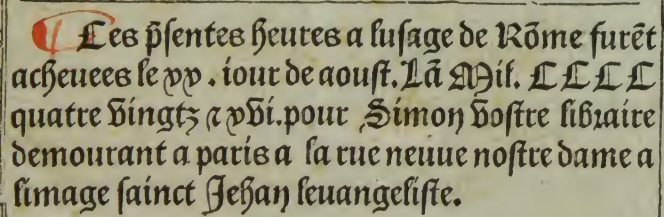 ¶ Ces p̃sentes heures a lusage de Rõme furẽt
acheuees le xx . iour de aoust. Lã Mil. CCCC
quatre vingtz ⁊ xvi. pour Simon vostre libraire
demourant a paris a la rue neuue nostre dame a
limage sainct Jehan leuangeliste.